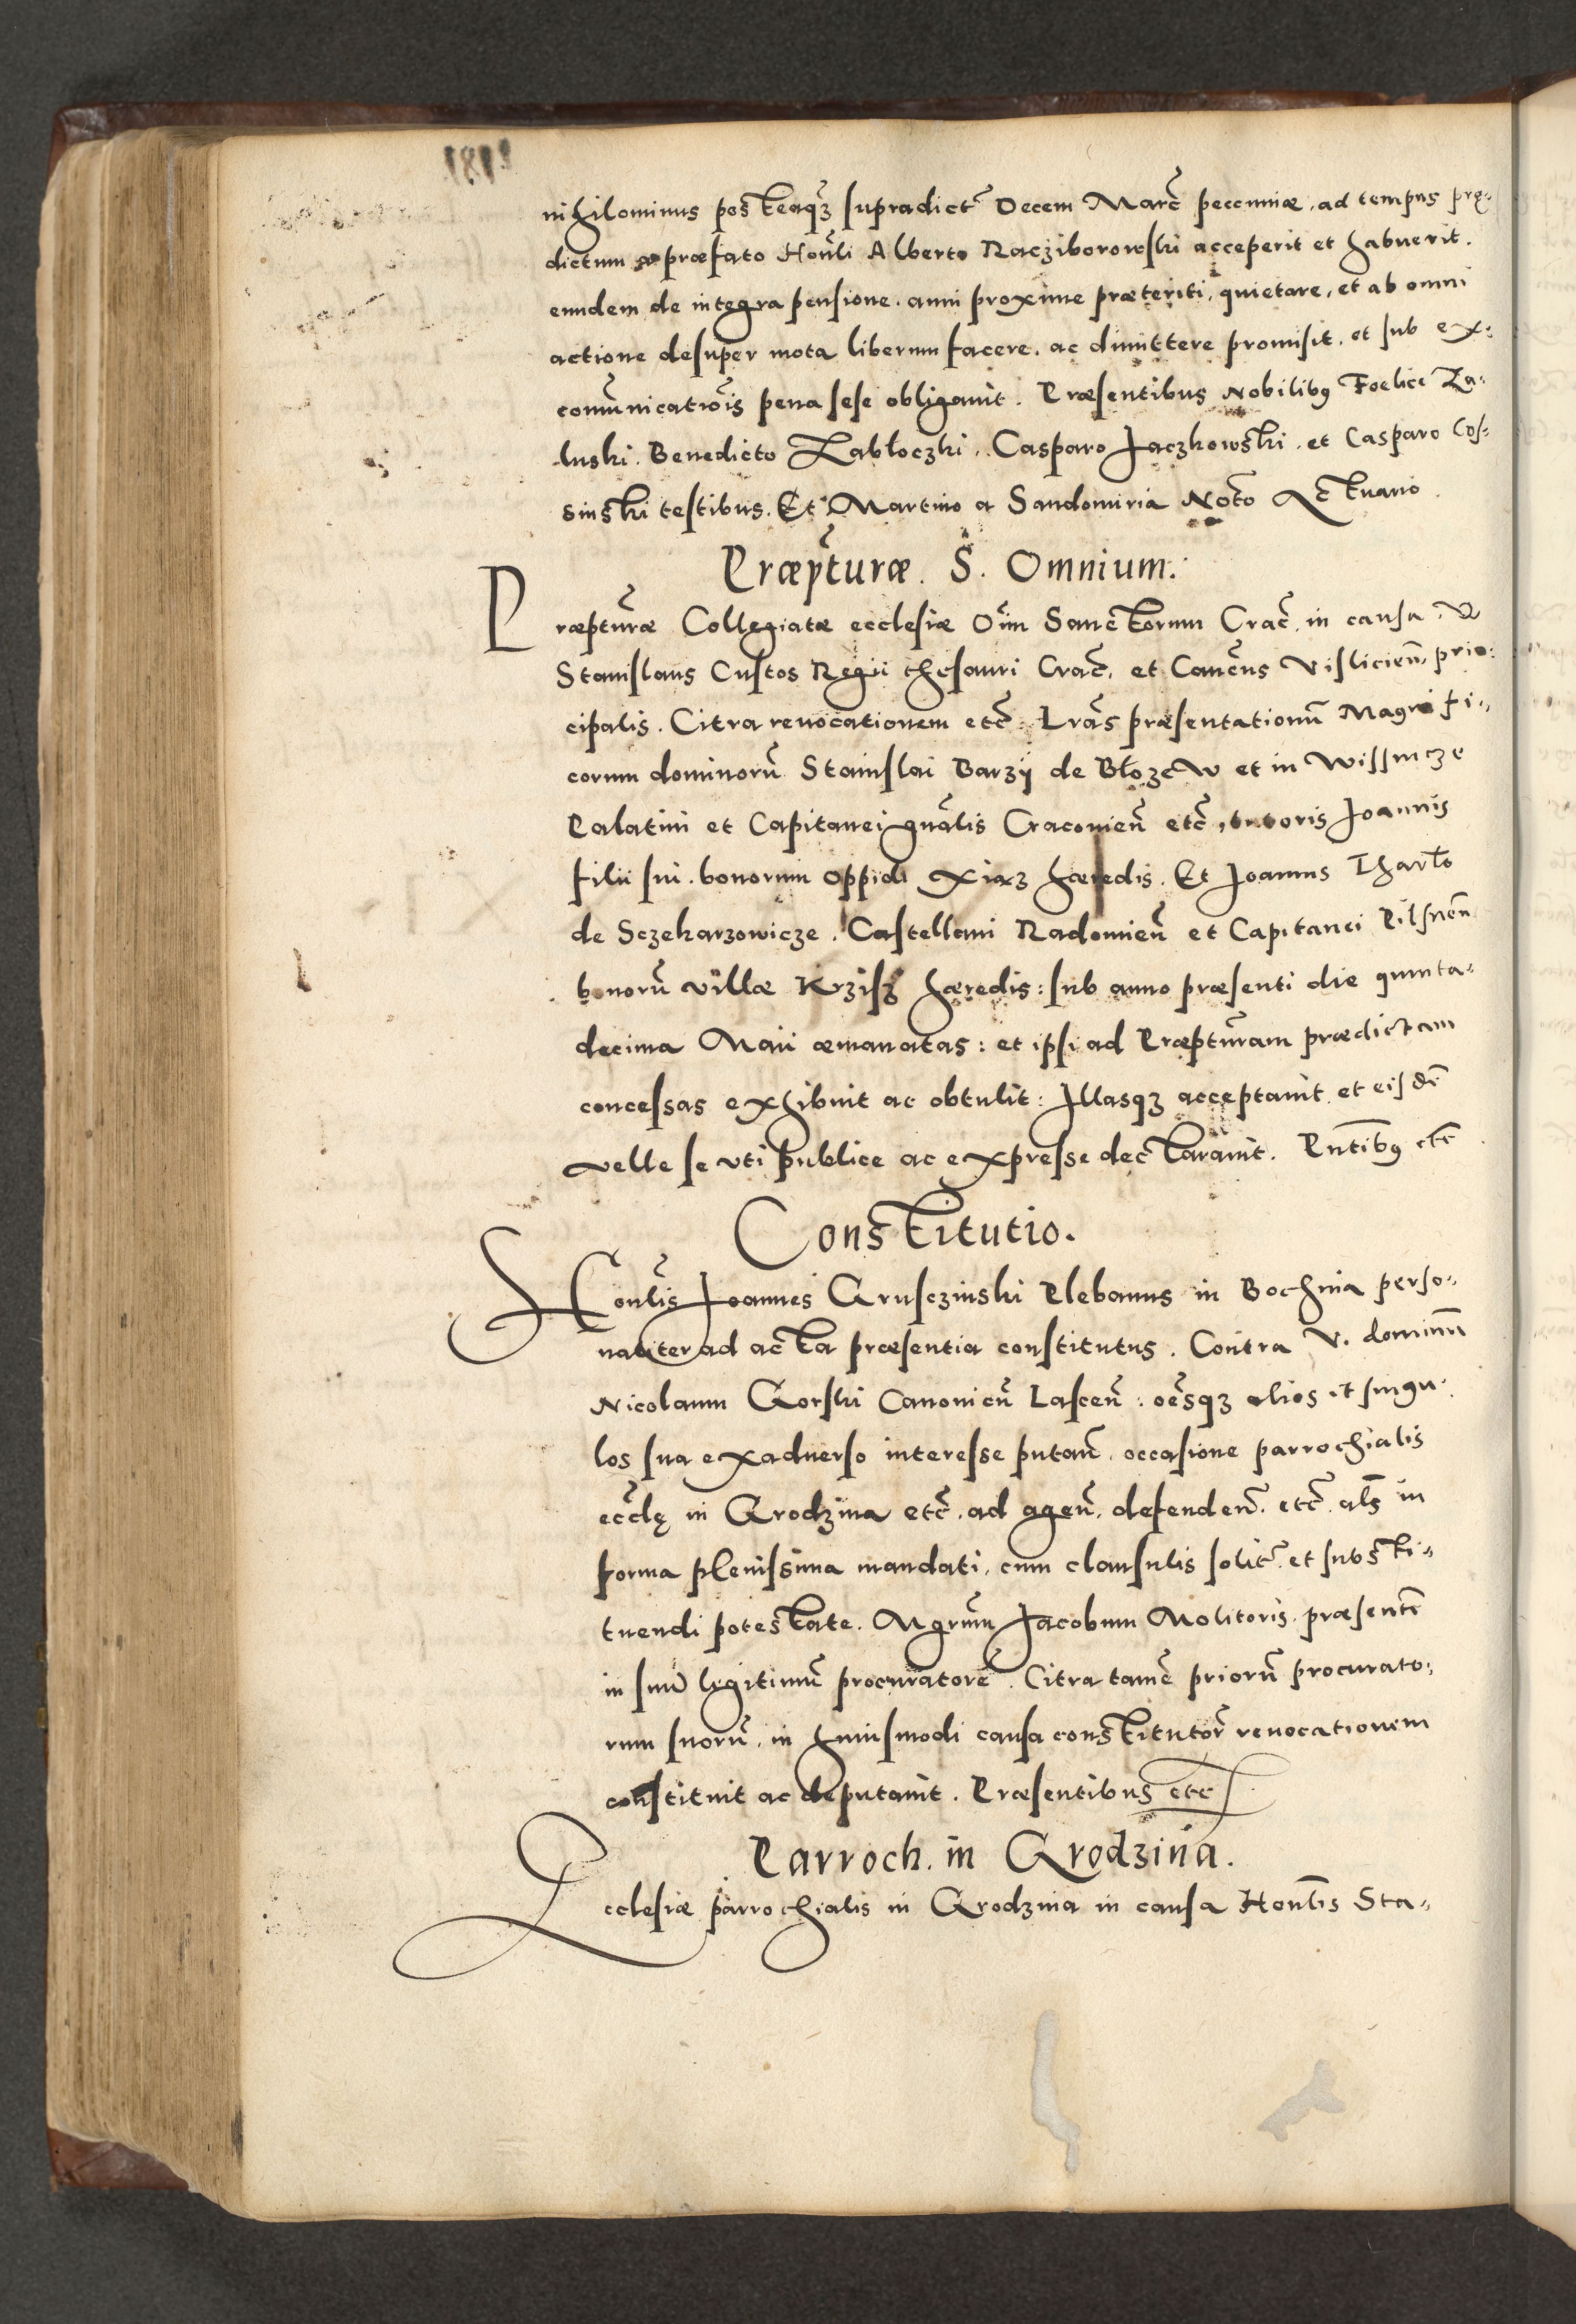 nihilominus posteaqz supradict Decem Marc̃ pecuniæ, ad tempus præ-
dictum a præfato Honli Alberto Racziborowski acceperit et habuerit.
eundem de integra pensione. anni proxime præteriti, quietare, et ab omni
actione desuper mota liberum facere. ac dimittere promisit. et sub ex-
comunicatiõis pena sese obligauit. Præsentibus Nobilibq Foelice Za-
luski. Benedicto Zabłoczki, Casparo Jaczkowski. et Casparo Cos-
sinski testibus. Et Martino a Sandomiria Notõ Actuario.
Præpturæ. S. Omnium.
Præpturæ Collegiatæ ecclesiæ Oim Sanctorum Crac̃. in causa. V.
Stanislaus Custos Regii thesauri Crac̃. et Canẽus Visliciẽn. prin-
cipalis. Citra reuocationem etc̃. Lrãs præsentationũ Magnifi-
corum dominorũ Stanislai Barzÿ de Błozew et in Wissnicze
Palatini et Capitanei gnãlis Craconiẽn etc̃, tutoris Joannis
filii sui. bonorum oppidi Xiaz hæredis. Et Joannis Tharło
de Sczekarzowicze. Castellani Radomiẽn et Capitanei Pilsnẽn
bonorũ villæ Krzisz hæredis: sub anno præsenti die quinta-
decima Maii æmanatas: et ipsi ad Præpturam prædictam
concessas exhibuit ac obtulit: Illasqz acceptauit et eisdẽ
velle se vti publice ac expresse declarauit. Pntibq etc̃
Constitutio.
Honlis Joannes Gruszinski Plebanus in Bochnia perso-
naliter ad acta præsentia constitutus. Contra V. dominũ
Nicolaum Gorski Canonicũ Lascẽn: oẽsqz alios et singu-
los sua exaduerso interesse putañ. occasione parrochialis
ecclę in Grodzina etc̃. ad agẽn. defendẽn. etc̃. als in
forma plenissima mandati, cum clausulis solit̃. et substi-
tuendi potestate. Mgrum Jacobum Molitoris. præsentẽ
in suũ legitimũ procuratorẽ. Citra tamẽ priorũ procurato-
rum suorũ. in huiusmodi causa constitutor̃ reuocationem
constituit ac deputauit. Præsentibus etc
Parroch. in Grodzina.
Ecclesiæ parrochialis in Grodzina in causa Honlis Sta-